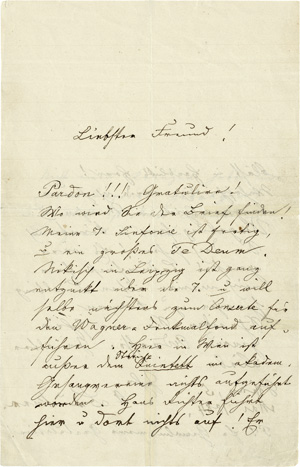 Liebster Freund!
Pardon!!! Gratuliere!
Wo wird Sie der Brief finden.
Meine 7. Sinfonie ist fertig,
u ein großes Te Deum.
Nikisch in Leipzig ist ganz
entzückt über die 7. u will
selbe nächstens zum Concerte für
den Wagner-Denkmalfond auf-
führen. Hier in Wien ist
außer dem Quintett im akadem.
Gesangverein nichts aufgeführt
worden. Hans Richter führt
hier u dort nichts auf! Er